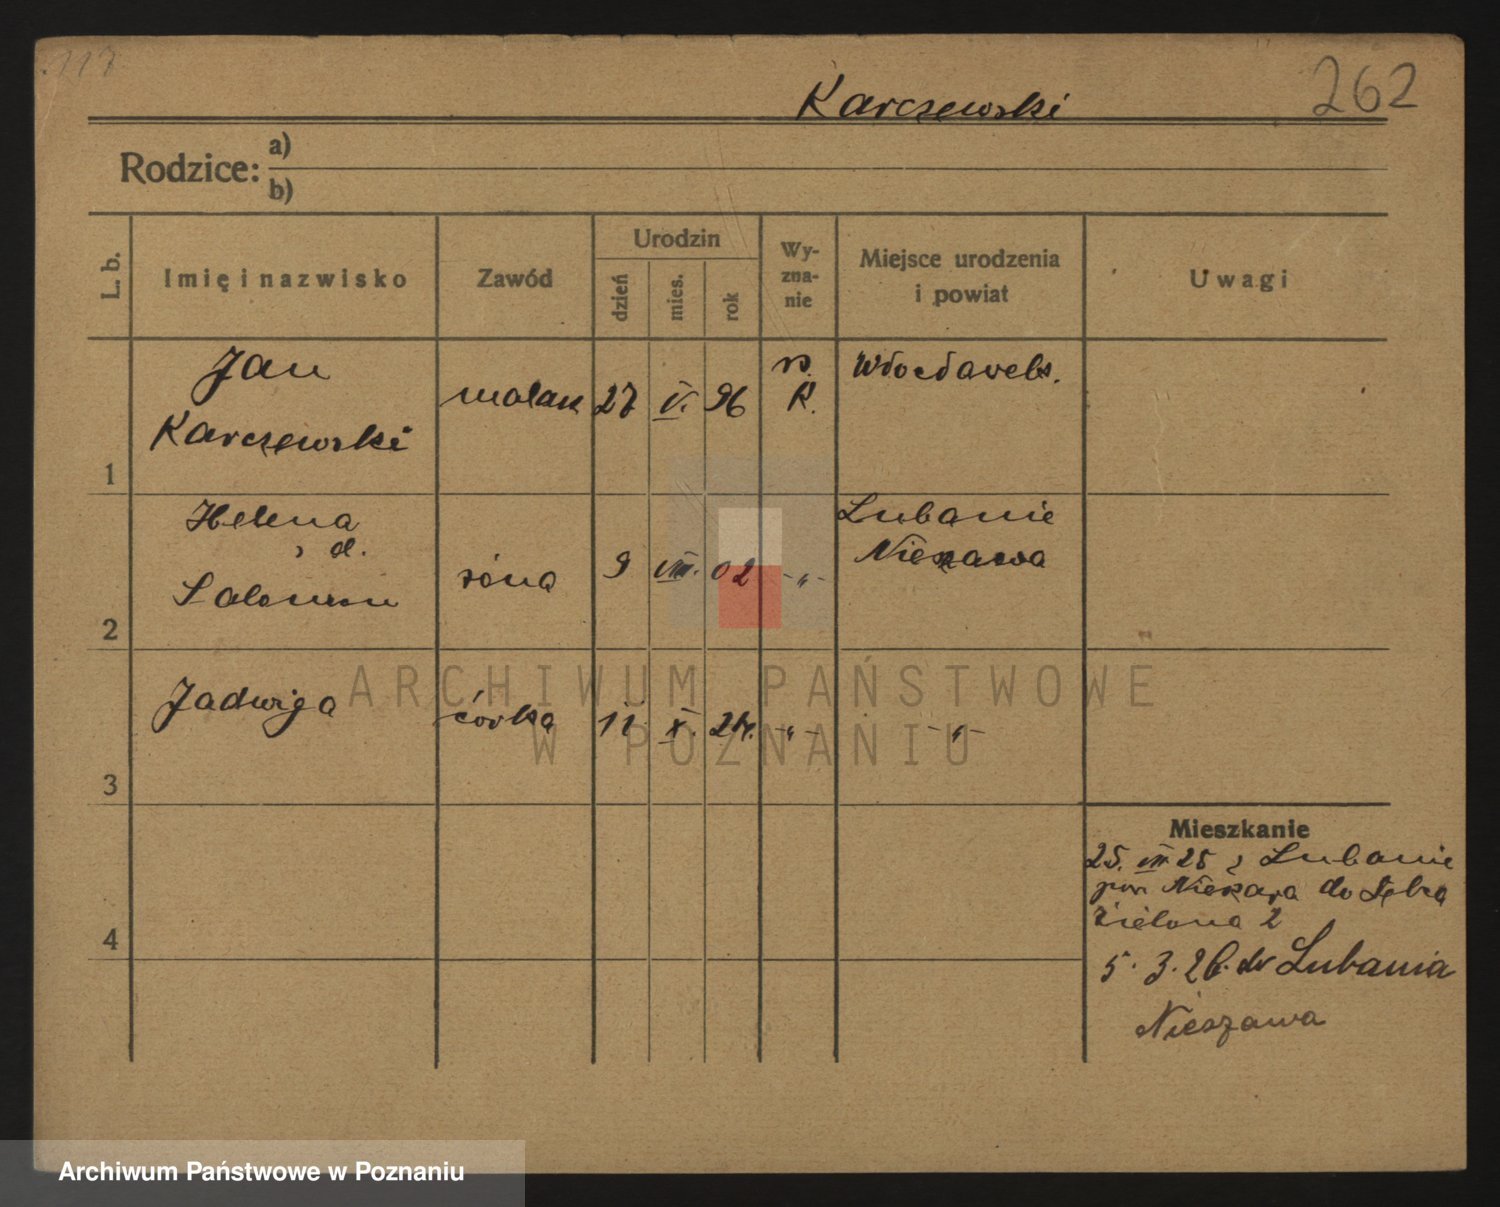 117
262
Karczewski
Rodzice: a)
b)
L. b.
Imię i nazwisko
Zawód
Urodzin
dzień
mies.
rok
Wy-
zna-
nie
Miejsce urodzenia
i powiat
Uwagi
Jan
Karczewski
malarz
27
V.
96
rz.
K.
Włocławek.
1
Helena
z d.
Salomon
żona
9
VIII.
02
-„-
Lubanie
Nieszawa
2
Jadwiga
córka
11
X.
24.
-„-
-„-
3
4
Mieszkanie
25. VIII 25 z Lubanie
pow Nieszawa do
Zielona 2
5. 3. 26. do Lubania
Nieszawa
ARCHIWUM PAŃSTWOWE
W POZNANIU
Archiwum Państwowe w Poznaniu